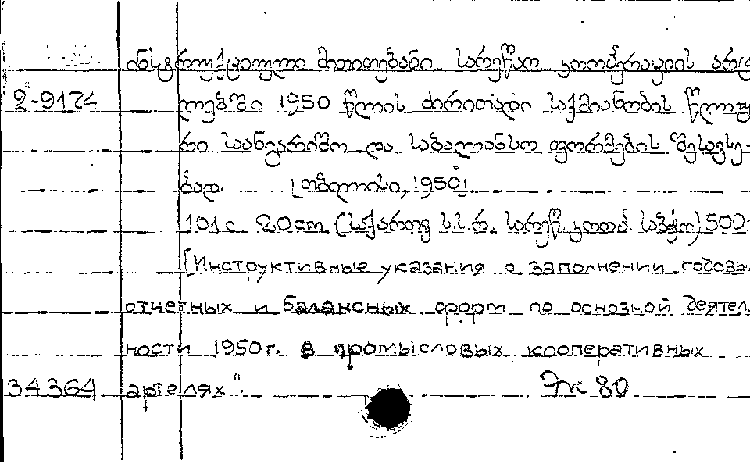 ინსტრუქციული მითითებანი სარეწაო კოოპერაციის არტე
2-9174 ლებში 1950 წლის ძირითადი საქმიანობის წლიუ
რი საანგარიშო და საბალანსო ფორმების შესავსე-
ბად. [თბილისი, 1950]
101 с. 20 cm. (საქართვ. ს.ს.რ. სარეწ. კოოპ. საბჭო) 500
[Инструктивные указания о заполнении годовы
отчетных и балансных форм по основной деятель
ности 1950 г. в промысловых кооперативных
34364 артелях".